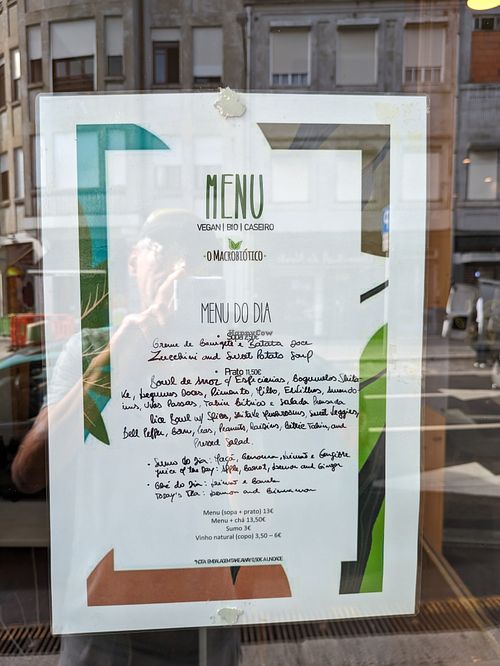 MENU
VEGAN | BIO | CASEIRO
O MACROBIÓTICO
MENU DO DIA
HappyCow
• Sopa 2,50€
Creme de e Batata Doce
Zucchini and Sweet Potato Soup
• Prato 11,50€
Bowl de Arroz c/ Especiarias, Cogumelos Shita-
ke, Legumes Doces, Pimento, Milho, Ervilhas, Amendo-
ins, Uvas Passas, Tahin Cítrico e Salada Prensada
Rice Bowl w/ Spices, Shitake Mushrooms, Sweet Veggies,
Bell Pepper, Corn, Peas, Peanuts, Raisins, Citric Tahin, and
Pressed Salad.
• Sumo do Dia: Maçã, Cenoura, e Gengibre
Juice of the Day: Apple, Carrot, Lemon and Ginger
• Chá do Dia: e Canela
Today's Tea: Lemon and Cinnamon
Menu (sopa + prato) 13€
Menu + chá 13,50€
Sumo 3€
Vinho natural (copo) 3,50 – 6€
*NOTA: EMBALAGEM TAKE AWAY 0,50€ A UNIDADE